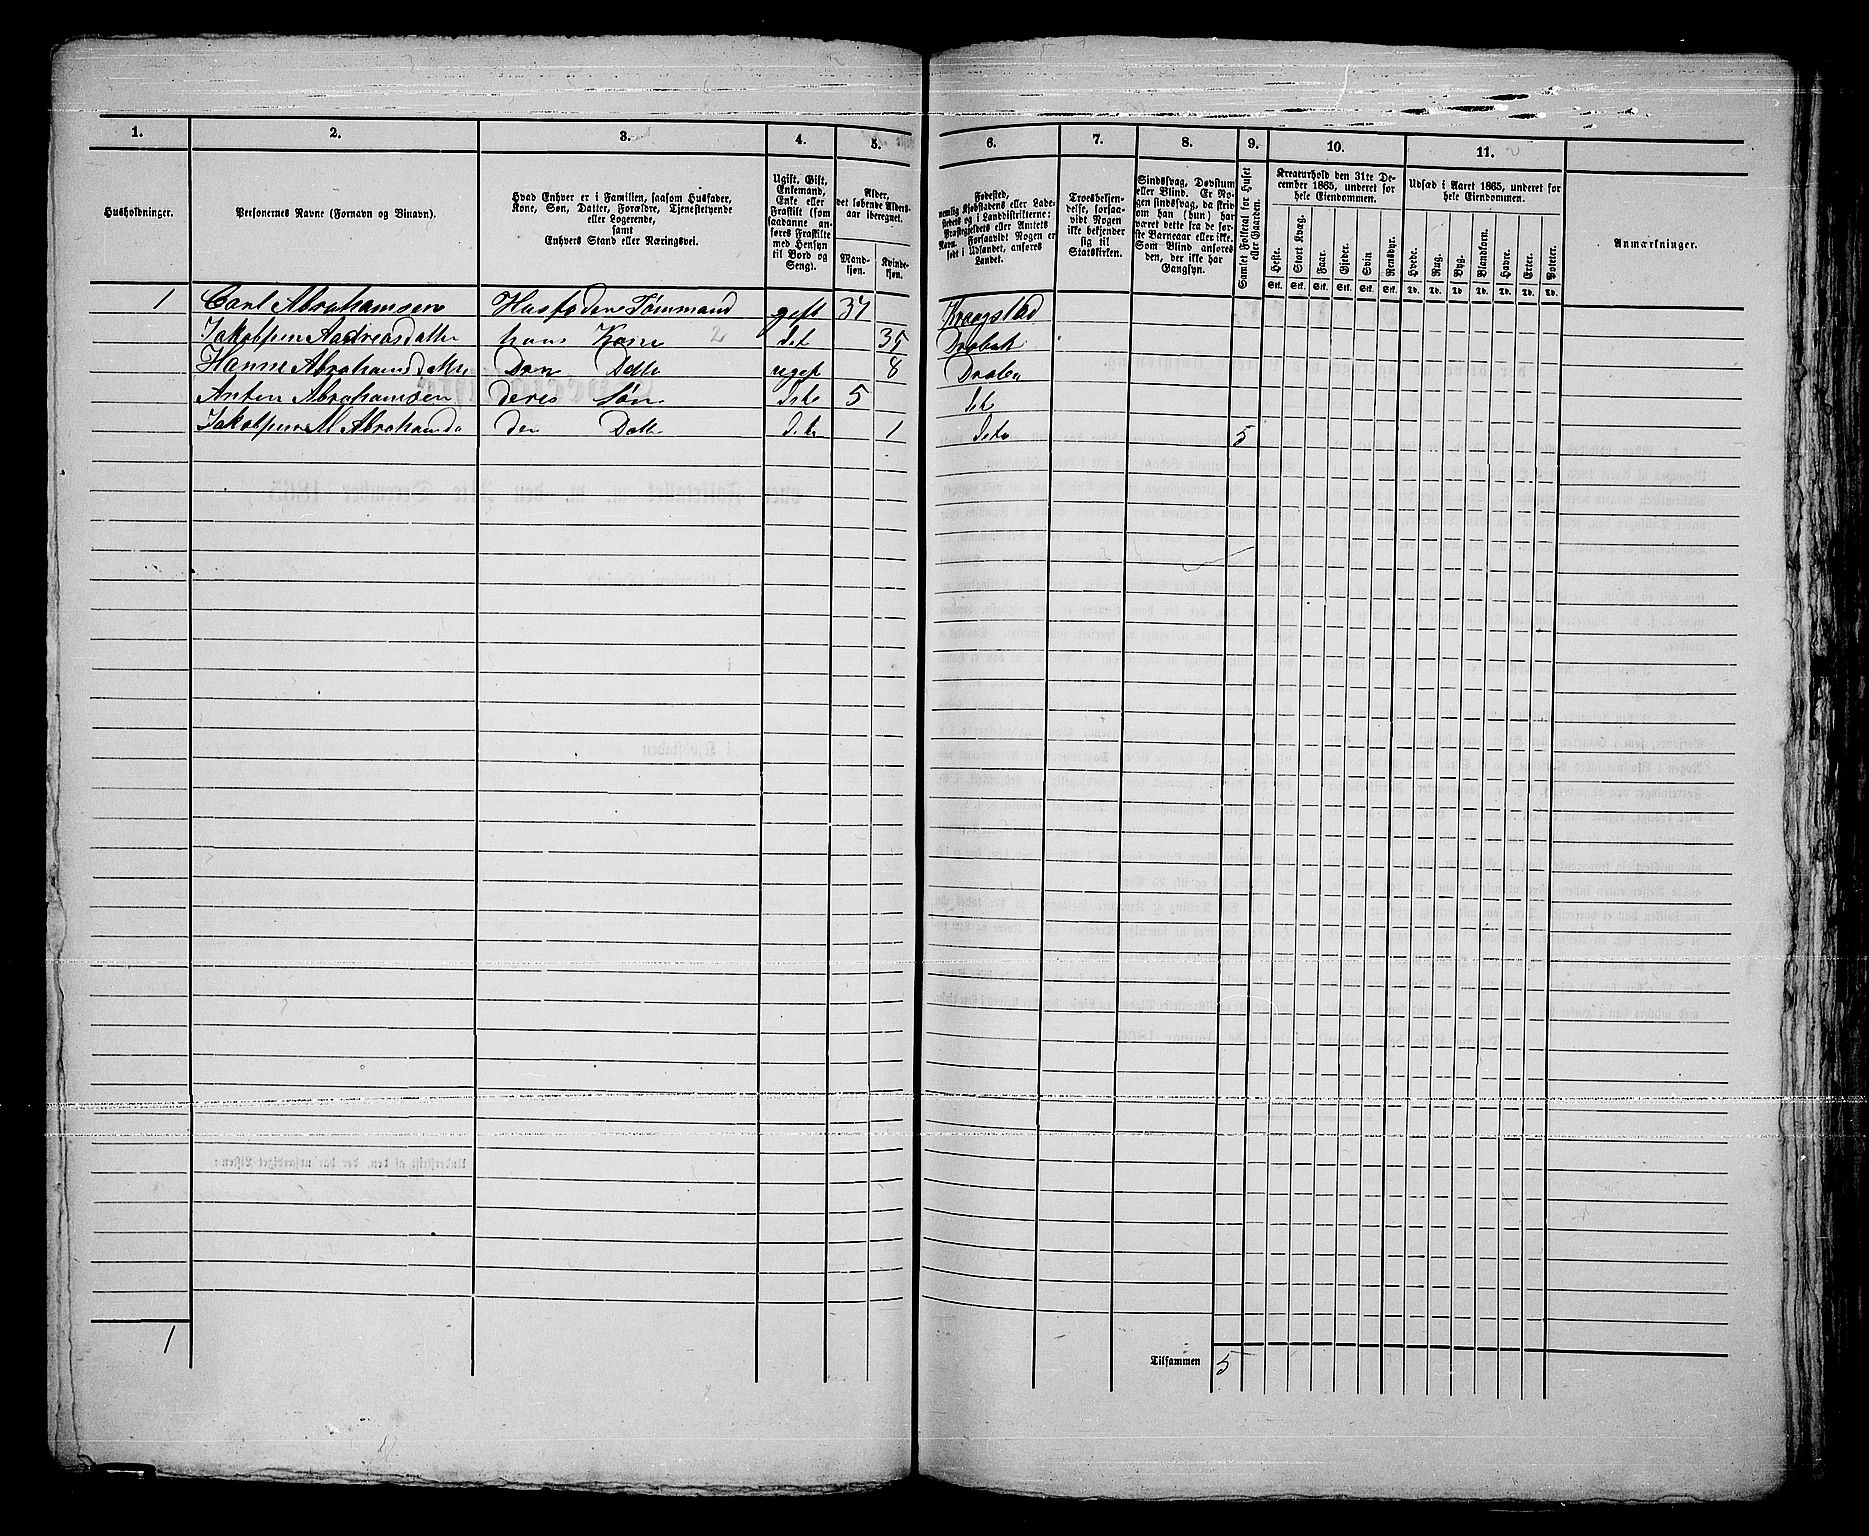 1. 2. 3. 4. 5. 6. 7. 8. 9. 10. 11.
Husholdninger.
Personernes Navne (Fornavn og Binavn).
Hvad Enhver er i Familien, saasom Husfader,
Kone, Søn, Datter, Forældre, Tjenestetyende
eller Logerende,
samt
Enhvers Stand eller Næringsvei.
Ugift, Gift,
Enkemand,
Enke eller
Fraskilt (som
saadanne an-
føres Fraskilte
med Hensyn
til Bord og
Seng).
Alder,
det løbende Alders-
aar iberegnet.
Mand-
kjøn.
Kvinde-
kjøn.
Fødested,
nemlig Kjøbstadens eller Lade-
stedets og i Landdistrikterne:
Præstegjeldets eller Amtets
Navn. Forsaavidt Nogen er
født i Udlandet, anføres
Landet.
Troesbekjen-
delse, forsaa-
vidt Nogen
ikke bekjender
sig til
Statskirken.
Sindssvag, Døvstum
eller Blind. Er No-
gen sindssvag, da skriv
om han (hun) har
været dette fra de før-
ste Barneaar eller ikke.
Som Blind anføres
den, der ikke har
Gangsyn.
Samlet Folketal for Huset
eller Gaarden.
Kreaturhold den 31te De-
cember 1865, underet for
hele Eiendommen.
Heste. Stort Kvæg. Faar. Gjeder. Svin Rensdyr.
Stk. Stk. Stk. Stk. Stk. Stk.
Udsæd i Aaret 1865, underet for
hele Eiendommen.
Hvede. Rug. Byg. Blandkorn. Havre. Erter. Poteter.
Td. Td. Td. Td. Td. Td. Td.
Anmærkninger.
1 Carl Abrahamsen Husfader Tømmand gift 37 Kraagstad
Jakobpen Aadreasdatter hans Kone 2 det 35 Drøbak
Hanne Abrahamsdatter Dere Datte ugift 8 Drøbak
Anten Abrahamsen deres Søn dito 5 dito
Jakobpen M Abrahamsda der Datte dito 1 dito 5
1 Tilsammen 5